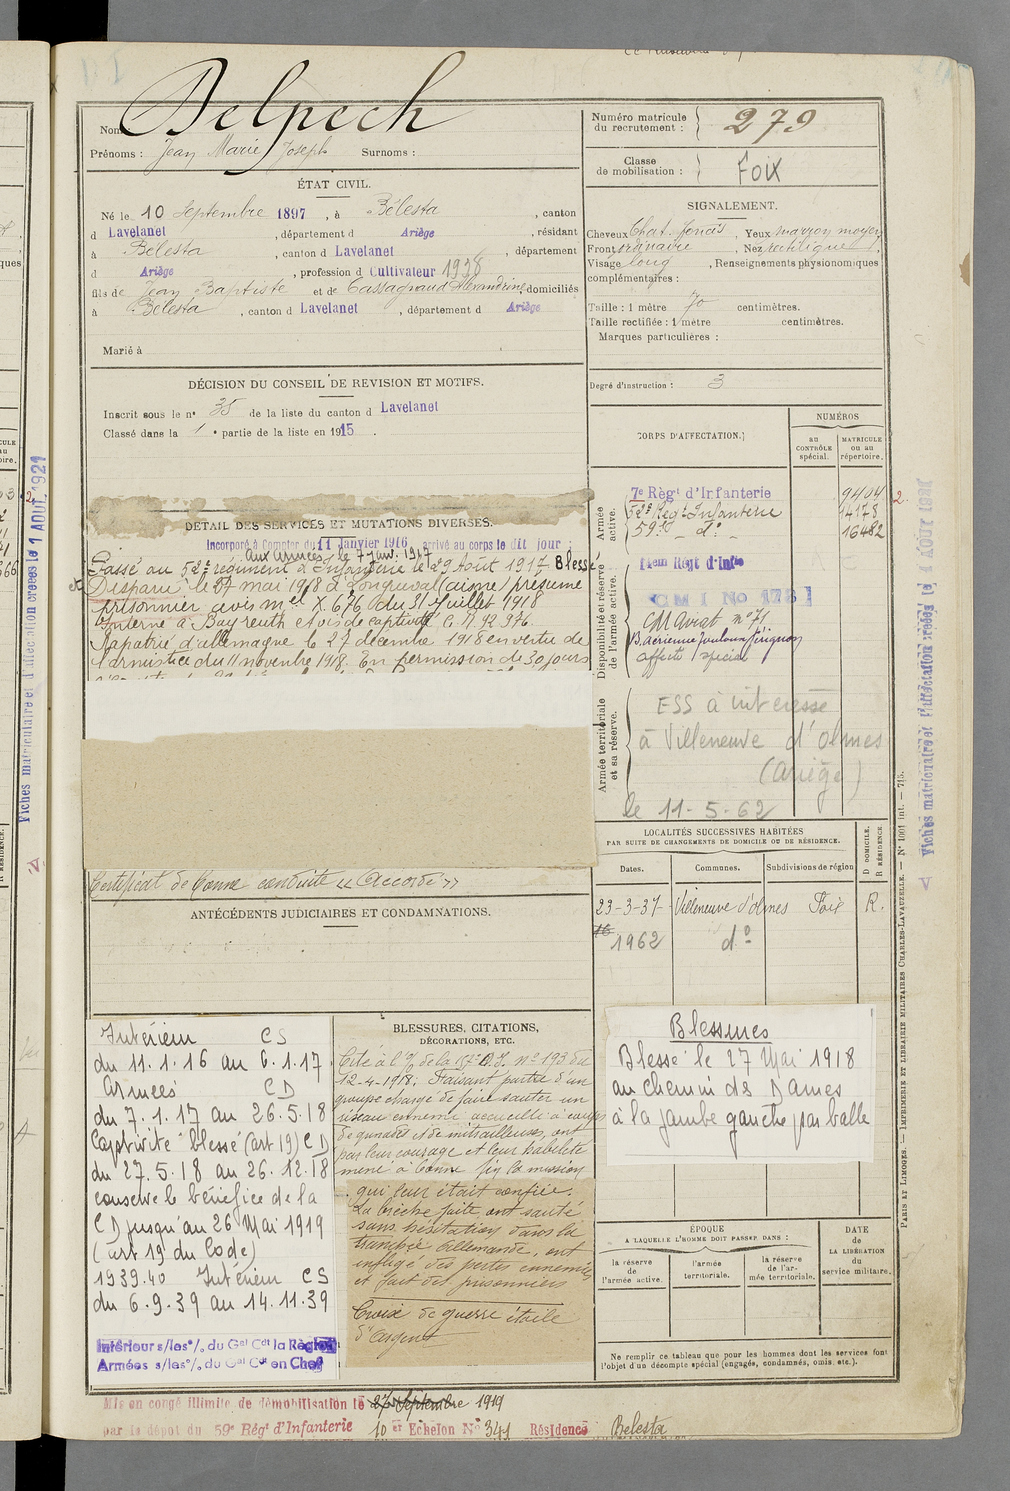 Nom Delpech
Prénoms : Jean Marie Joseph Surnoms :
Numéro matricule du recrutement : 279
Classe de mobilisation : Foix
ÉTAT CIVIL.
Né le 10 Septembre 1897, à Bélesta, canton
d Lavelanet, département d Ariège, résidant
à Bélesta, canton d Lavelanet, département
d Ariège, profession d Cultivateur 1938
fils de Jean Baptiste et de Cassagnaud Alexandrine domiciliés
à Bélesta, canton d Lavelanet, département d Ariège
Marié à
SIGNALEMENT.
Cheveux Chat. foncés, Yeux marron moyen
Front ordinaire, Nez rectiligne
Visage long, Renseignements physionomiques
complémentaires :
Taille : 1 mètre 70 centimètres.
Taille rectifiée : 1 mètre centimètres.
Marques particulières :
Degré d'instruction : 3
DÉCISION DU CONSEIL DE REVISION ET MOTIFS.
Inscrit sous le n° 35 de la liste du canton d Lavelanet
Classé dans la 1e partie de la liste en 1915.
DÉTAIL DES SERVICES ET MUTATIONS DIVERSES.
Incorporé à Compter du 11 Janvier 1916 arrivé au corps le dit jour :
aux armées le 7 janv. 1917
Passé au 52e régiment d'Infanterie le 29 Août 1917 Blessé
et Disparu le 27 mai 1918 à Longueval (aisne) présumé
prisonnier avis mel X. 676 du 31 Juillet 1918
Interné à Bayreuth
Rapatrié d'allemagne le 27 décembre 1918 en vertu de
l'armistice du 11 novembre 1918. En permission de 30 jours
Certificat de bonne conduite « Accordé »
ANTÉCÉDENTS JUDICIAIRES ET CONDAMNATIONS.
CORPS D'AFFECTATION.
NUMÉROS
AU CONTRÔLE spécial.
MATRICULE ou au répertoire.
Armée active.
7e Régt d'Infanterie 9404
52e Régt Infanterie 14178
59e - d° - 16482
Disponibilité et réserve de l'armée active.
14em Régt d'Infie
CMI No 178
CM Aviat n° 71
B. aérienne Toulouse Férignon
affecté spécial
Armée territoriale et sa réserve.
ESS à intéressé
à Villeneuve d'olmes
(Ariège)
le 11-5-62
LOCALITÉS SUCCESSIVES HABITÉES
PAR SUITE DE CHANGEMENTS DE DOMICILE OU DE RÉSIDENCE.
Dates. Communes. Subdivisions de région D DOMICILE. R RÉSIDENCE
23-3-37 Villeneuve d'olmes Foix R.
1962 d°
Intérieur CS
du 11.1.16 au 6.1.17
Armées CD
du 7.1.17 au 26.5.18
Captivité blessé (art 19) CD
du 27.5.18 au 26.12.18
conserve le bénéfice de la
CD jusqu'au 26 Mai 1919
(art 19 du Code)
1939.40 Intérieur CS
du 6.9.39 au 14.11.39
Intérieur s/les°/. du Gal Cdt la Région
Armées s/les°/. du Gal Cdt en Chef
BLESSURES, CITATIONS,
DÉCORATIONS, ETC.
Cité à l'O/ de la 157e D.I. n° 193 du
12-4-1918: Faisant partie d'un
groupe chargé de faire sauter un
réseau ennemi accueilli à coups
de grenades et de mitrailleuses, ont
par leur courage et leur habileté
mené à bonne fin la mission
qui leur était confiée.
La brèche faite, ont sauté
sans hésitation dans la
tranchée allemande, ont
infligé des pertes ennemies
et fait des prisonniers
Croix de guerre étoile
d'argent
Blessures
Blessé le 27 Mai 1918
au chemin des Dames
à la jambe gauche par balle
ÉPOQUE
A LAQUELLE L'HOMME DOIT PASSER DANS :
la réserve de l'armée active. l'armée territoriale. la réserve de l'armée territoriale.
DATE de LA LIBÉRATION du service militaire.
Ne remplir ce tableau que pour les hommes dont les services font
l'objet d'un décompte spécial (engagés, condamnés, omis, etc.).
Mis en congé illimité de démobilisation le 27 Septembre 1919
par le dépôt du 59e Régt d'Infanterie 10er Echelon N° 341 Résidence Belesta
PARIS ET LIMOGES. — IMPRIMERIE ET LIBRAIRIE MILITAIRES CHARLES-LAVAUZELLE. — N° 1001 int. — 715.
Fiches matriculaire et d'affectation créées le 1 AOUT 1921